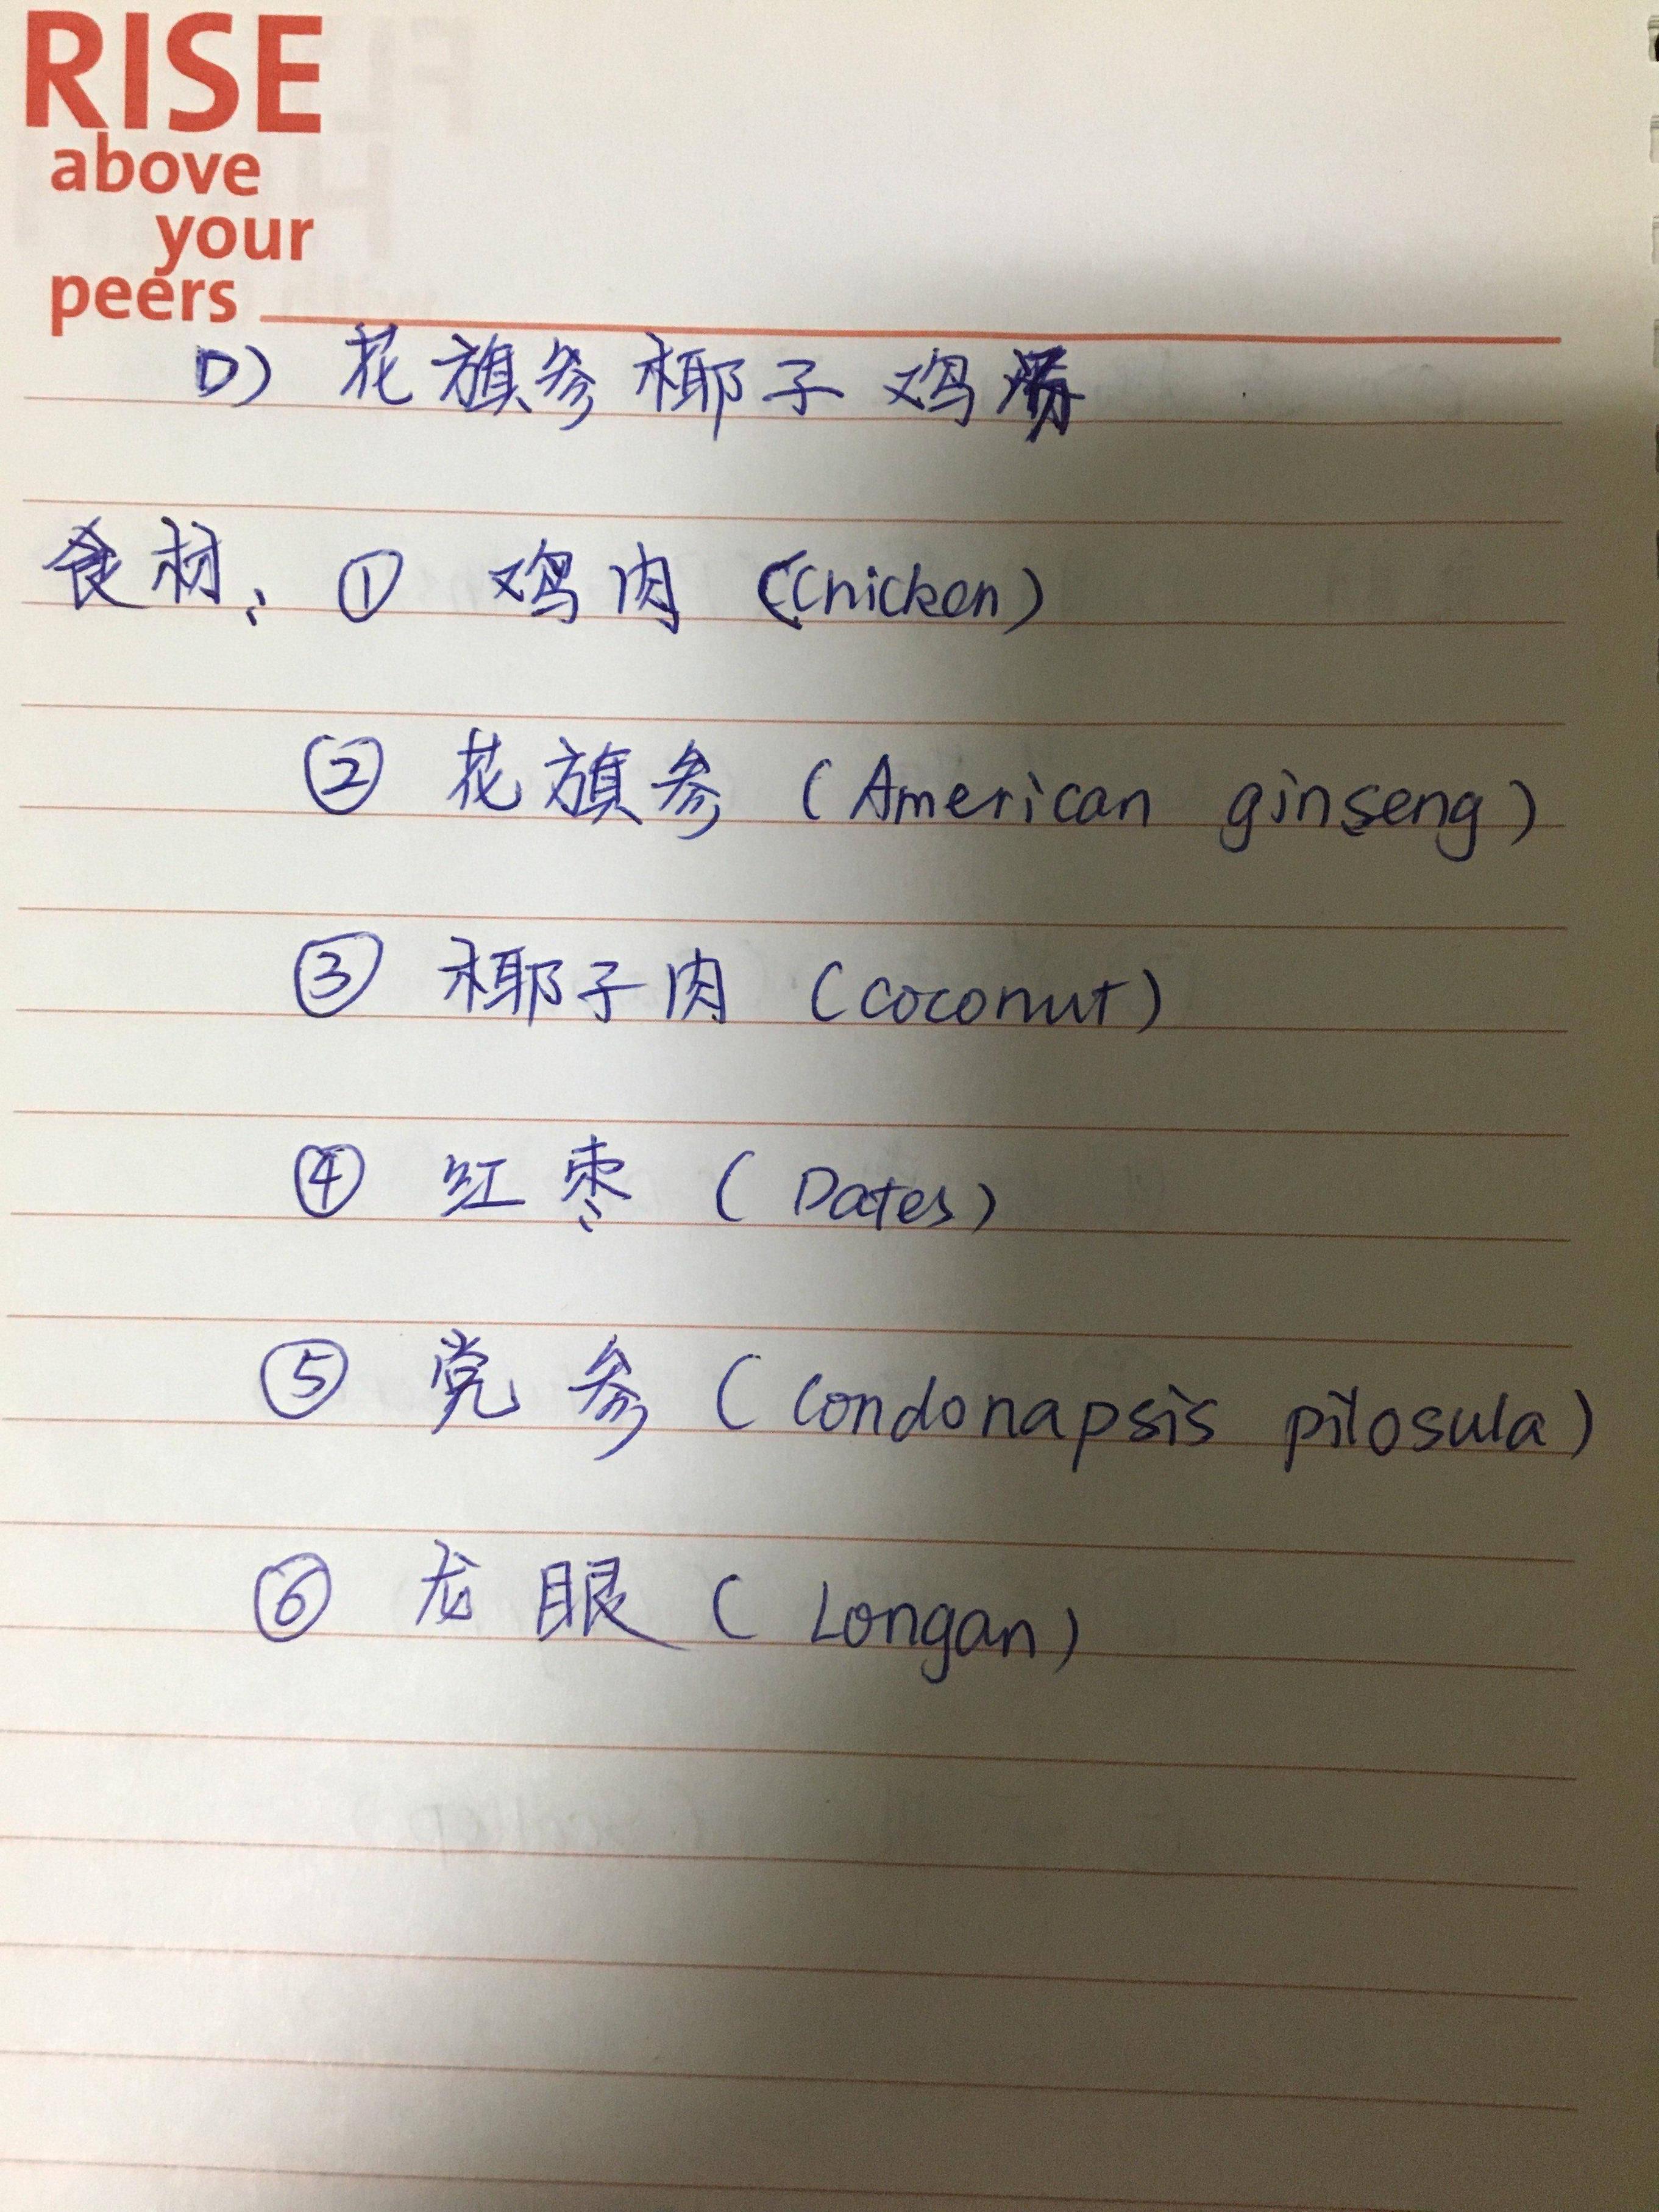 RISE
above
your
peers
D) 花旗参椰子鸡汤
食材: ① 鸡肉 (Chicken)
② 花旗参 (American ginseng)
③ 椰子肉 (coconut)
④ 红枣 (Dates)
⑤ 党参 (Condonapsis pilosula)
⑥ 龙眼 (Longan)